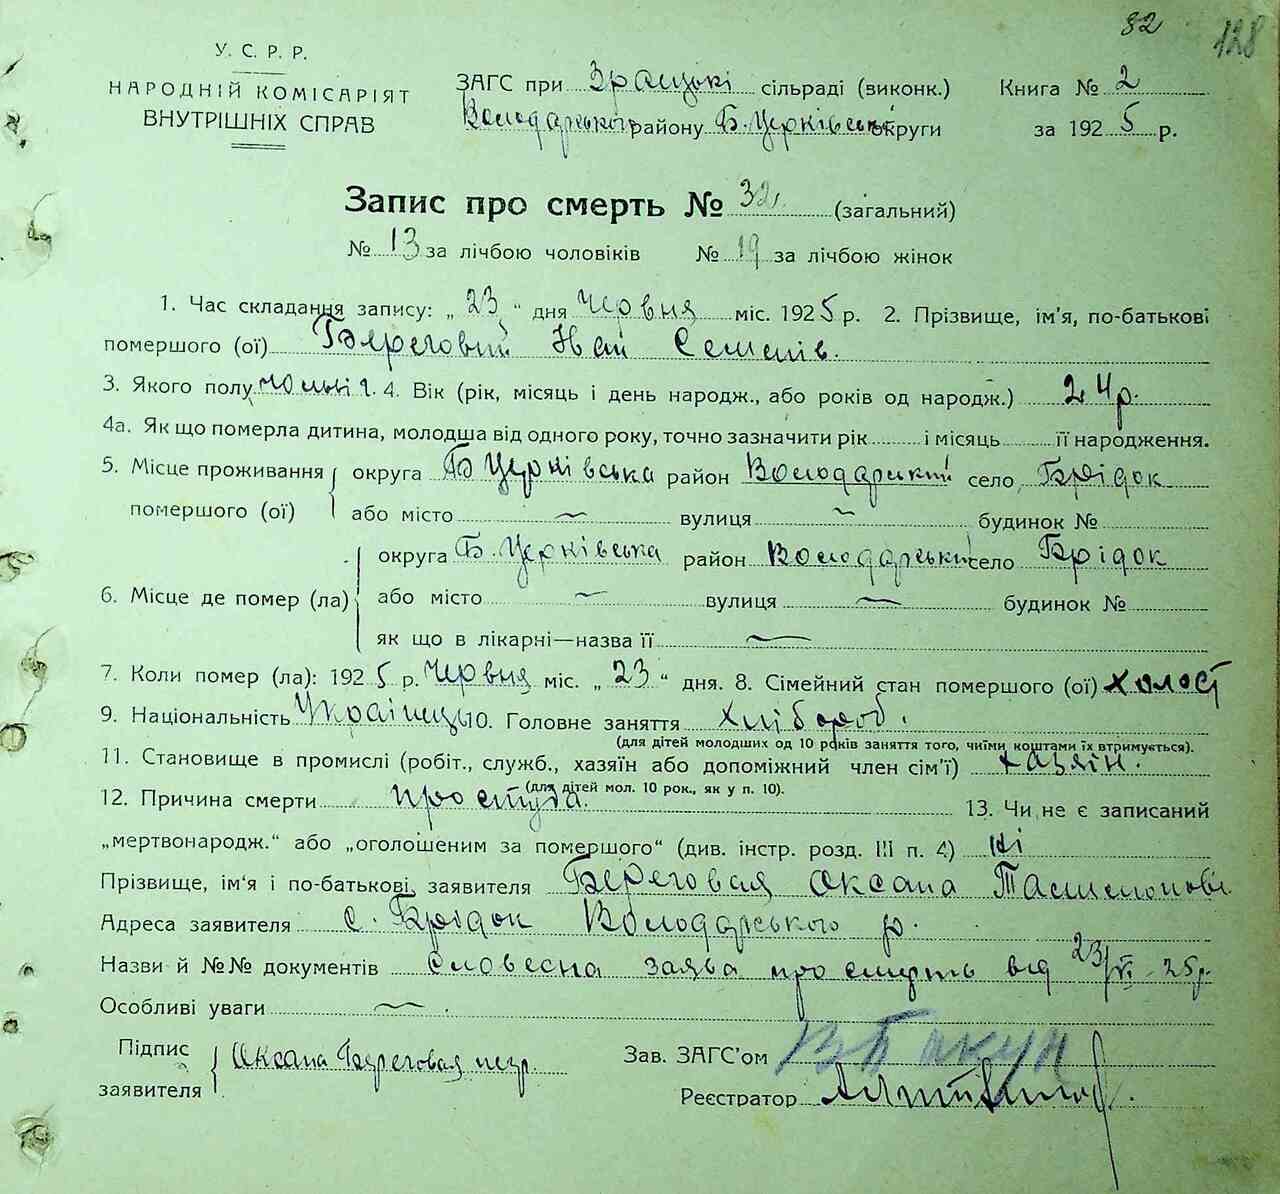 82 128
У. С. Р. Р.
НАРОДНІЙ КОМІСАРІЯТ
ВНУТРІШНІХ СПРАВ
ЗАГС при Зрайцькі сільраді (виконк.) Книга № 2
Володарського району Б. Церківської округи за 1925 р.
Запис про смерть № 32 (загальний)
№ 13 за лічбою чоловіків № 19 за лічбою жінок
1. Час складання запису: „23“ дня Червня міс. 1925 р. 2. Прізвище, ім'я, по-батькові
помершого (ої) Береговий Семенів.
3. Якого полу 4. Вік (рік, місяць і день народж., або років од народж.) 24 р.
4а. Як що померла дитина, молодша від одного року, точно зазначити рік і місяць її народження.
5. Місце проживання помершого (ої) округа Б Церківська район Володарський село Брідок
або місто — вулиця — будинок №
6. Місце де помер (ла) округа Б. Церківська район Володарський село Брідок
або місто — вулиця — будинок №
як що в лікарні—назва її —
7. Коли помер (ла): 1925 р. Червня міс. „23“ дня. 8. Сімейний стан помершого (ої) холост
9. Національність Українець 10. Головне заняття хлібороб.
(для дітей молодших од 10 років заняття того, чиїми коштами їх втримується).
11. Становище в промислі (робіт., служб., хазяїн або допоміжний член сім'ї) хазяїн.
(для дітей мол. 10 рок., як у п. 10).
12. Причина смерти простуда. 13. Чи не є записаний
„мертвонародж.“ або „оголошеним за помершого“ (див. інстр. розд. III п. 4) ні
Прізвище, ім'я і по-батькові, заявителя Береговая Оксана
Адреса заявителя с. Брідок Володарського р.
Назви й №№ документів словесна заява про смерть від 23/VI 25 р.
Особливі уваги —
Підпис заявителя Оксана Береговая
Зав. ЗАГС'ом
Реєстратор